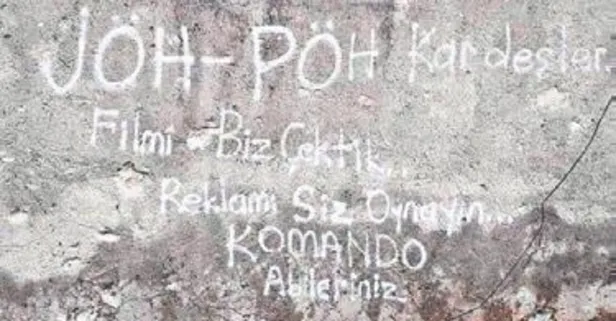 JÖH-PÖH Kardeşler.
Filmi Biz Çektik..
Reklamı Siz Oynayın...
KOMANDO
Abileriniz